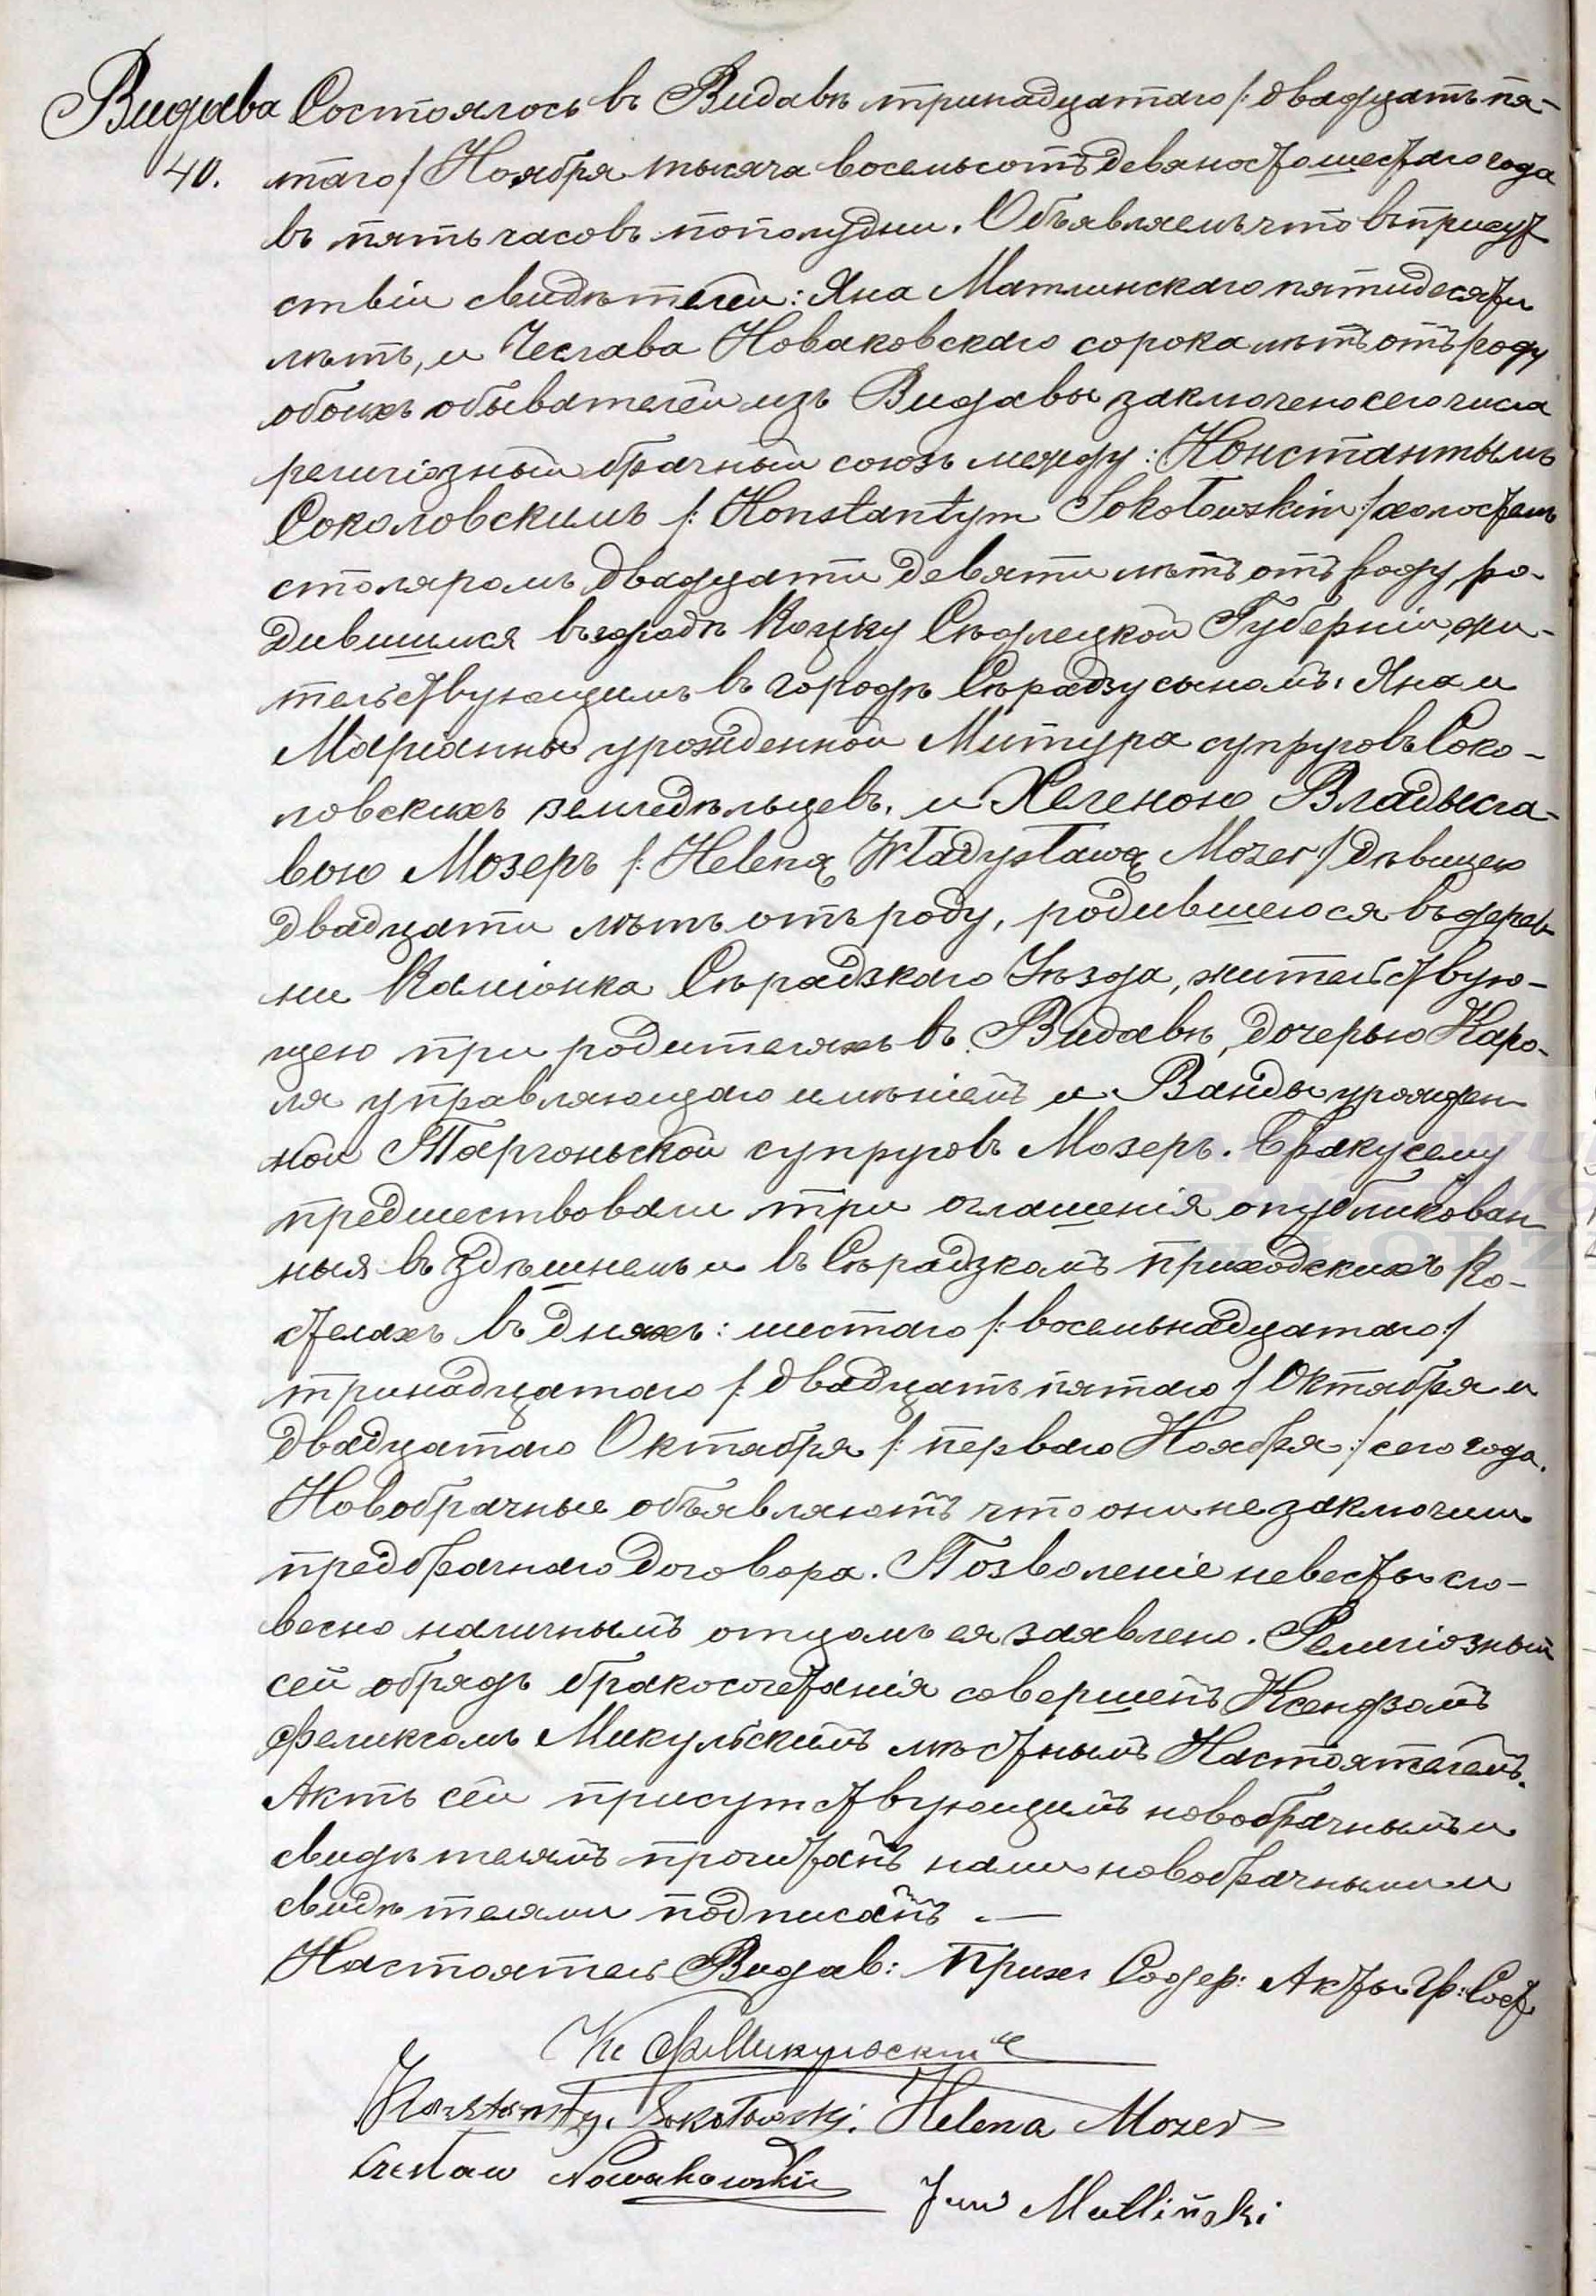 Видава Состоялось въ Видавѣ тринадцатаго /: двадцать пя-
40. таго / Ноября тысяча восемьсотъ девяностошестаго года
въ пять часовъ пополудни. Объявляемъ что въ присут
ствіи свидѣтелей: Яна Матлинскаго пятидесяти
лѣтъ, и Чеслава Новаковскаго сорока лѣтъ отъ роду
обоихъ обывателей изъ Видавы заключено сего числа
религіозный брачный союзъ между: Константымъ
Соколовскимъ /: Konstantym Sokołowskim :/ холостымъ
столяромъ двадцати девяти лѣтъ отъ роду, ро-
дившимся въ городѣ Коцку Сѣдлецкой Губерніи, жи-
тельствующимъ въ городѣ Сѣрадзу сыномъ: Яна и
Маріанны урожденной Митура супруговъ Соко-
ловскихъ земледѣльцевъ, и Хеленою Владысла-
вою Мозеръ /: Heleną Władysławą Mozer :/ дѣвицею
двадцати лѣтъ отъ роду, родившеюся въ дерев-
ни Каміонка Сѣрадзкаго Уѣзда, жительствую-
щею при родителяхъ въ Видавѣ, дочерью Каро-
ля управляющаго имѣніемъ и Ванды урожден-
ной Таргоньской супруговъ Мозеръ. Браку сему
предшествовали три оглашенія опубликован
ныя въ здѣшнемъ и въ Сѣрадзкомъ приходскихъ Ко-
стелахъ въ дняхъ: шестаго /: восемьнадцатаго :/
тринадцатаго /: двадцать пятаго / Октября и
двадцатаго Октября /: перваго Ноября :/ сего года.
Новобрачные объявляютъ что они не заключили
предбрачнаго договора. Позволеніе невесты сло-
весно наличнымъ отцомъ ея заявлено. Религіозный
сей обрядъ бракосочетанія совершенъ Ксендзомъ
Феликсомъ Микульскимъ мѣстнымъ Настоятелемъ.
Актъ сей присутствующимъ новобрачнымъ и
свидѣтелямъ прочитанъ нами новобрачными и
свидѣтелями подписанъ. —
Настоятель Видав: Прих: Содер: Акты Гр: Сост
Кс Ф Микульскій
Konstanty Sokołowski. Helena Mozer
Czesław Nowakowski Jan Matliński